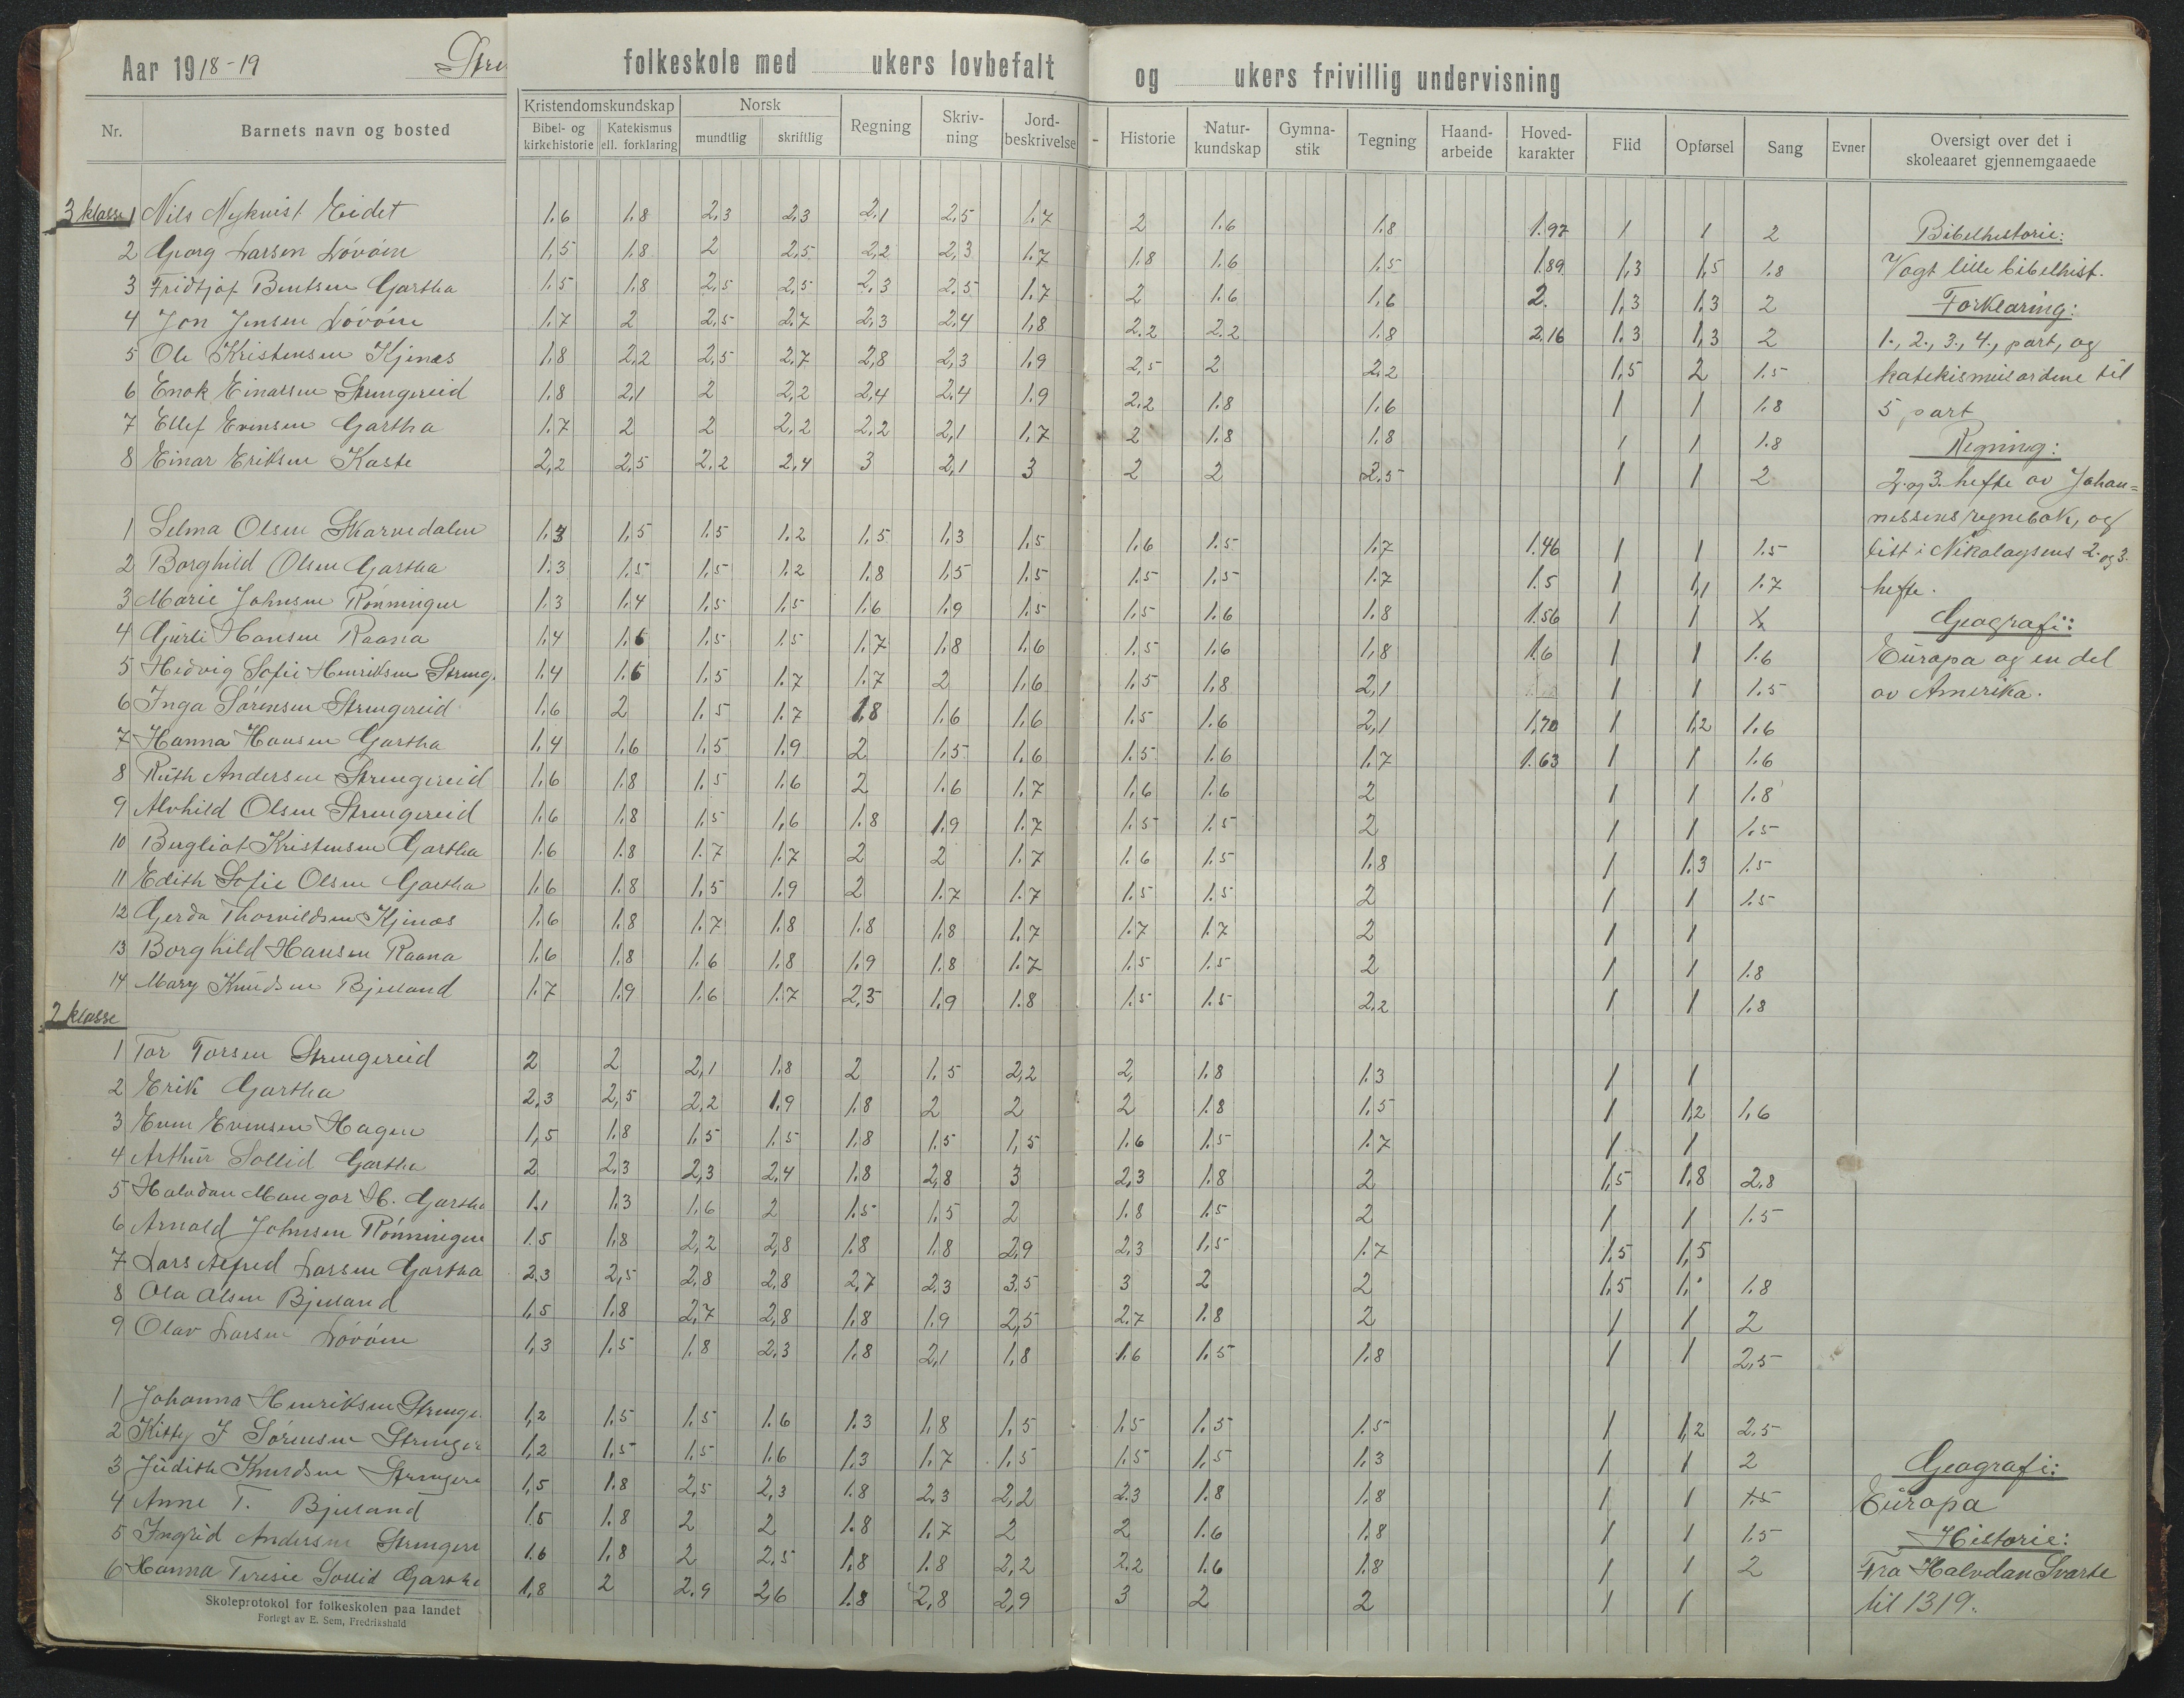 Aar 1918-19 Stre folkeskole med ukers lovbefalt og ukers frivillig undervisning
Nr. Barnets navn og bosted Kristendomskundskap Bibel- og kirkehistorie Katekismus ell. forklaring Norsk mundtlig skriftlig Regning Skriv-ning Jord-beskrivelse - Historie Natur-kundskap Gymna-stik Tegning Haand-arbeide Hoved-karakter Flid Opførsel Sang Evner Oversigt over det i skoleaaret gjennemgaaede
3 klasse 1 Nils Nykvist Eidet 1.6 1.8 2,3 2,3 2,1 2,5 1.7 2 1.6 1.8 1.97 1 1 2 Bibelhistorie:
2 Georg Larsen Lövåsen 1,5 1.8 2 2,5 2,2 2,3 1.7 1.8 1.6 1.5 1.89 1,3 1,5 1.8 Vogt lille bibelhist.
3 Fridtjof Bentsen Gartha 1.5 1.8 2,5 2,5 2,3 2,5 1.7 2 1.6 1.6 2. 1,3 1,3 2 Forklaring:
4 Jon Jensen 1.7 2 2,5 2.7 2,3 2.4 1,8 2.2 2.2 1.8 2.16 1.3 1,3 2 1., 2., 3., 4., part, og
5 Ole Kristensen Kjenæs 1,8 2,2 2,5 2.7 2,8 2,3 1,9 2,5 2 2,2 1,5 2 1.5 katekismusordene til
6 Enok Einarsen Strengereid 1.8 2,1 2 2,2 2,4 2.4 1.9 2.2 1.8 1.6 1 1 1.8 5 part
7 Ellef Evensen Gartha 1.7 2 2 2,2 2,2 2,1 1,7 2 1.8 1.8 1 1 1.8 Regning:
8 Einar Eriksen Kaste 2,2 2,5 2.2 2,4 3 2,1 3 2 2 2.5 1 1 2 2. og 3. hefte av Johan=
nessens regnebok, og
1 Selma Olsen Skarvedalen 1.3 1,5 1.5 1.2 1.5 1,3 1.5 1.6 1.5 1.7 1.46 1 1 1.5 litt i Nikolaysens 2. og 3.
2 Borghild Olsen Gartha 1.3 1.5 1.5 1.2 1.8 1,5 1.5 1.5 1.5 1.7 1.5 1 1,1 1.7 hefte.
3 Marie Johnsen Rönningen 1.3 1.4 1.5 1.5 1.6 1.9 1.5 1.5 1.6 1.8 1.56 1 1 Geografi:
4 Gurli Hansen Raana 1.4 1.6 1.5 1.5 1.7 1.8 1.6 1.5 1.6 1,8 1.6 1 1 1.6 Europa og en del
5 Hedvig Sofie Henriksen Streng. 1.4 1.6 1.5 1.7 1.7 2 1.6 1.5 1.8 2,1 1 1 1.5 av Amerika.
6 Inga Sörensen Strengereid 1,6 2 1.5 1.7 1.8 1.6 1.6 1.5 1.6 2,1 1,70 1 1,2 1.6
7 Hanna Hansen Gartha 1,4 1.6 1.5 1.9 2 1.5 1.6 1.5 1.6 1.7 1.63 1 1 1.6
8 Ruth Andersen Strengereid 1.6 1.8 1.5 1.6 2 1.6 1.7 1,6 1.6 2 1 1 1.8
9 Alvhild Olsen Strengereid 1.6 1.8 1.5 1.6 1.8 1.9 1.7 1.5 1.5 2 1 1 1.5
10 Bergliot Kristensen Gartha 1.6 1.8 1.7 1.7 2 2 1.7 1.6 1.5 1.8 1 1.3 1.5
11 Edith Sofie Olsen Gartha 1.6 1.8 1.5 1.9 2 1.7 1.7 1.5 1.5 2 1 1 1.5
12 Gerda Thorvildsen Kjenæs 1.6 1.8 1.7 1.8 1.8 1.8 1.7 1.7 1.7 2 1 1
13 Borghild Hansen Raana 1.6 1.8 1.6 1.8 1.9 1.8 1.7 1.5 1.5 2 1 1 1.8
14 Mary Knudsen Bjelland 1.7 1.9 1.6 1.7 2,3 1.9 1.8 1.5 1.5 2,2 1 1 1.8
2 klasse
1 Tor Torsen Strengereid 2 2 2,1 1.8 2 1.5 2,2 2, 1.8 1.3 1 1
2 Erik Gartha 2,3 2,5 2,2 1.9 1.8 2 2 2 1.8 1.5 1 1,2 1,6
3 Even Evensen Hagen 1,5 1.8 1.5 1.5 1.8 1.5 1,5 1.6 1.5 1.7 1 1
4 Arthur Sollid Gartha 2 2.3 2,3 2,4 1.8 2,8 3 2,3 1.8 2 1,5 1,8 2.8
5 Halvdan Mangor H. Gartha 1.1 1.3 1.6 2 1.5 1.5 2 1.8 1.5 2 1 1 1.5
6 Arnold Johnsen Rönningen 1.5 1,8 2,2 2,8 1.8 1.8 2,9 2,3 1,5 1.7 1,5 1,5
7 Lars Alfred Larsen Gartha 2.3 2,5 2,8 2,8 2,7 2,3 3.5 3 2 2 1,5 1. 1.8
8 Ola Olsen Bjelland 1,5 1.8 2,7 2,8 1.8 1.9 2,5 2.7 1.8 2 1 1 2
9 Olav Larsen Lövåsen 1,3 1.5 1.8 2.3 1.8 2,1 1,8 1.6 1.5 1.8 1 1 2,5
1 Johanna Henriksen Strenge. 1,2 1.5 1.5 1.6 1.3 1,8 1,5 1,5 1.5 1.5 1 1,2 2.5
2 Kitty J Sörensen Strenger 1,2 1.5 1.5 1.6 1.3 1.7 1.5 1.5 1,5 1.3 1 1 2 Geografi:
3 Judith Knudsen Strengere 1,5 1.8 2,5 2,3 1.8 2.3 2,2 2.3 1.8 1.8 1 1 1.5 Europa
4 Anne T. Bjelland 1.5 1.8 2 2 1.8 1.7 2 2 1.6 1.8 1 1 1.5 Historie:
5 Ingrid Andersen Strengere 1.6 1,8 2 2,5 1,8 1.8 2,2 2.2 1.6 1.8 1 1 2 Fra Halvdan Svarte
6 Hanna Teresie Sollid Gartha 1,8 2 2.9 2,6 1.8 2,8 2,9 3 2 2 1 1 til 1319.
Skoleprotokol for folkeskolen paa landet
Forlegt av E. Sem, Fredrikshald